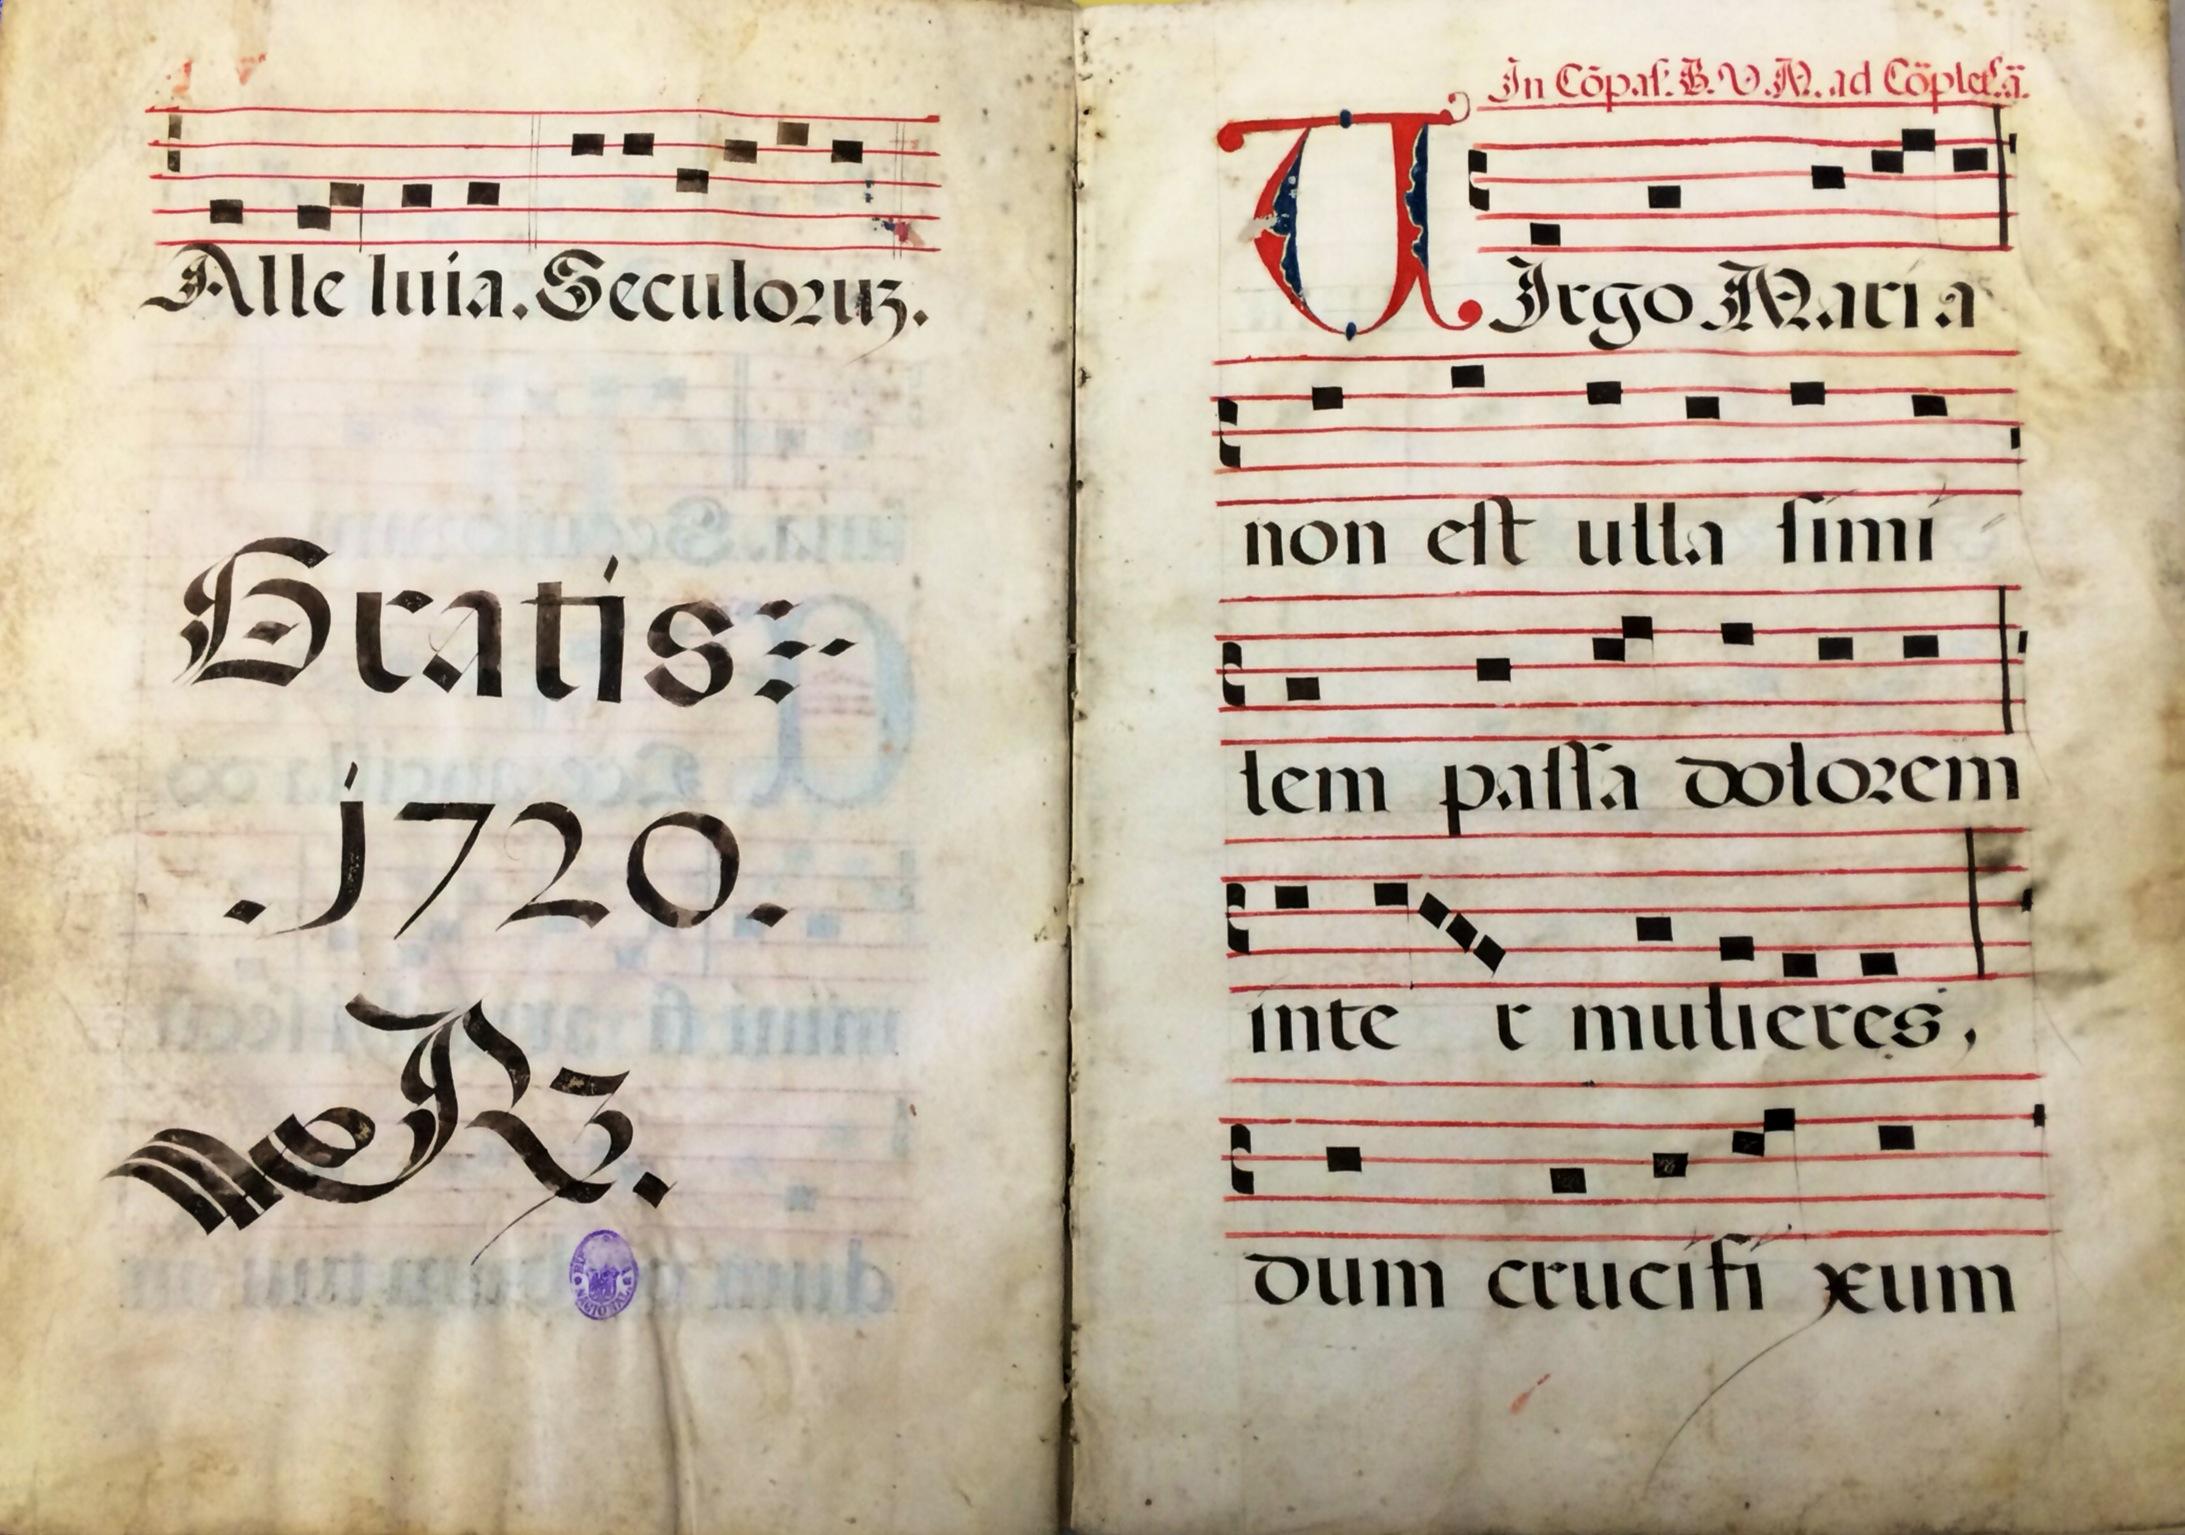 Alle luia. Seculoruz.
Gratis
.1720.
In Cōpas. B. V. M. ad Cōplet.ā.
VIrgo Maria
non est ulla simi
lem passa dolorem
inte r mulieres,
dum crucifi xum